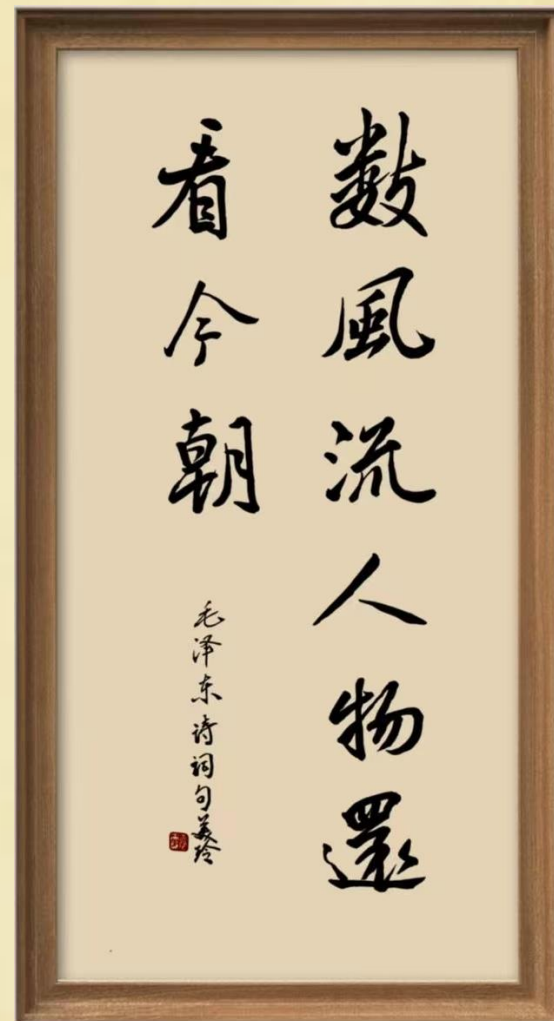 数風流人物還
看今朝
毛泽东诗词句美玲